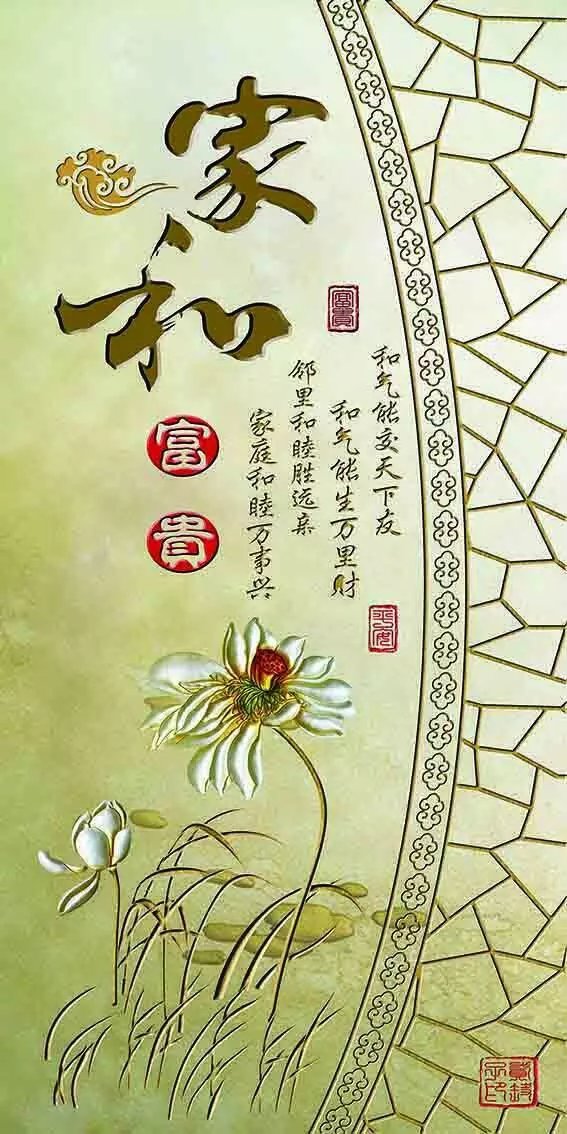 家和
富貴
富貴
和气能交天下友
和气能生万里财
邻里和睦胜远亲
家庭和睦万事兴
平安